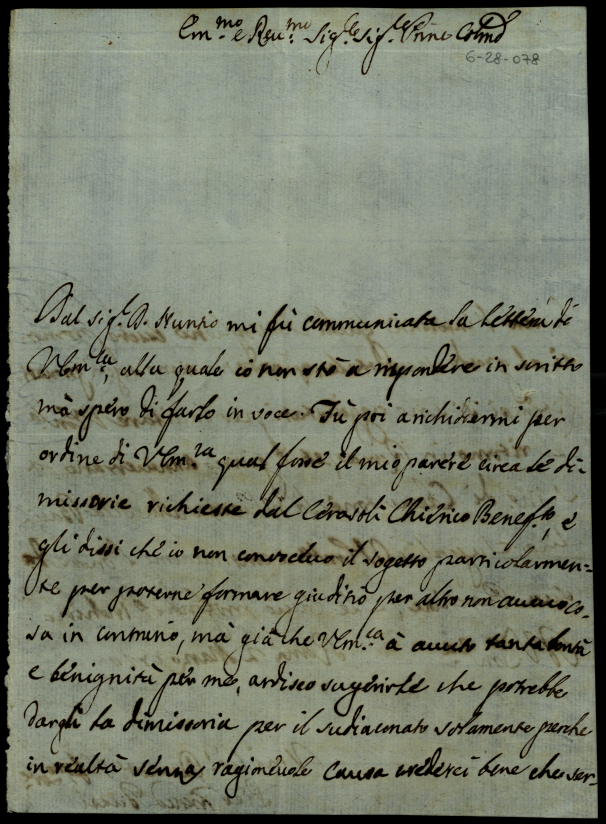 Em.mo e Reu.mo Sig.re Sig.re Prīne Colmo
6-28-078
Dal sig.r D. Nunzio mi fù communicata la lettera di
V Em.za, alla quale io non stò a rispondere in scritto
mà spero di farlo in voce. Fù poi a richiedermi per
ordine di V Em.za qual fosse il mio parere circa le di-
missorie richieste dal Cerasoli Chierico Benef.to, e
gli dissi che io non conoscevo il sogetto particolarmen-
te per poterne formare giuditio per altro non auevo co-
sa in contrario, mà già che V Em.za à auuto tanta bontà
e benignità per me, ardisco sugerirle che potrebbe
dargli la dimissoria per il sudiaconato solamente perche
in realtà senza ragioneuole causa crederei bene che ser-